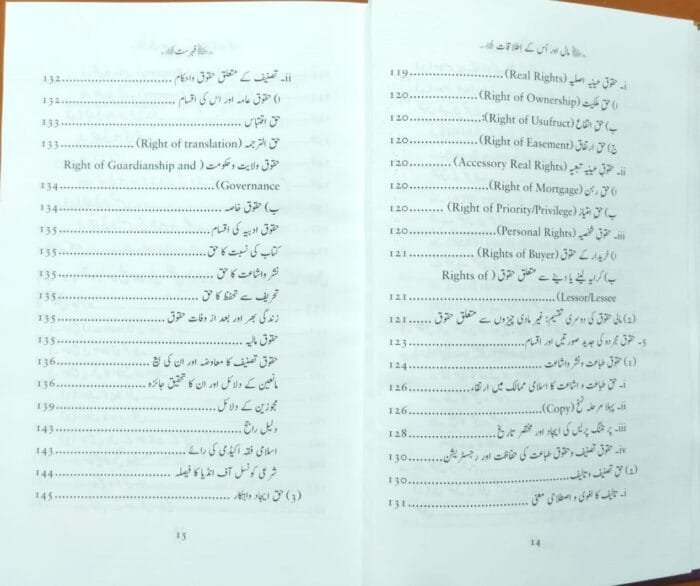 مال اور اُس کے اطلاقات
i۔ حقوق عینیہ اصلیہ (Real Rights)..........119
ا) حق ملکیت (Right of Ownership)..........120
ب) حق انتفاع (Right of Usufruct):..........120
ج) حق ارتفاق (Right of Easement)..........120
ii۔ حقوق عینیہ تبعیہ (Accessory Real Rights)..........120
ا) حق رہن (Right of Mortgage)..........120
ب) حق امتیاز (Right of Priority/Privilege)..........120
iii۔ حقوق شخصیہ (Personal Rights)..........120
ا) خریدار کے حقوق (Rights of Buyer)..........121
ب) کرایہ لینے یا دینے سے متعلق حقوق (Rights of
Lessor/Lessee)..........121
(2) مالی حقوق کی دوسری تقسیم: غیر مادی چیزوں سے متعلق حقوق..........121
5۔ حقوق مجردہ کی جدید صورتیں اور اقسام..........123
(1) حقوق طباعت و نشر واشاعت..........124
i۔ حق طباعت و اشاعت کا اسلامی ممالک میں ارتقاء..........126
ii۔ پہلا مرحلہ نسخ (Copy)..........126
iii۔ پرنٹنگ پریس کی ایجاد اور مختصر تاریخ..........128
iv۔ حقوق تصنیف و حقوق طباعت کی حفاظت اور رجسٹریشن..........130
(2) حق تصنیف وتالیف..........130
i۔ تالیف کا لغوی و اصطلاحی معنی..........131
14
فہرست
ii۔ تصنیف کے متعلق حقوق واحکام..........132
ا) حقوق عامہ اور اس کی اقسام..........132
حق اقتباس..........133
حق الترجمہ (Right of translation)..........133
حقوق ولایت و حکومت (Right of Guardianship and
Governance)..........134
ب) حقوق خاصہ..........134
حقوق ادبیہ کی اقسام..........135
کتاب کی نسبت کا حق..........135
نشر واشاعت کا حق..........135
تحریف سے تحفظ کا حق..........135
زندگی بھر اور بعد از وفات حقوق..........135
حقوق مالیہ..........135
حقوق تصنیف کا معاوضہ اور ان کی بیع..........136
مانعین کے دلائل اور ان کا تحقیقی جائزہ..........136
مجوزین کے دلائل..........139
دلیل راجح..........143
اسلامی فقہ اکیڈمی کی رائے..........143
شرعی کونسل آف انڈیا کا فیصلہ..........144
(3) حق ایجاد وابتکار..........145
15